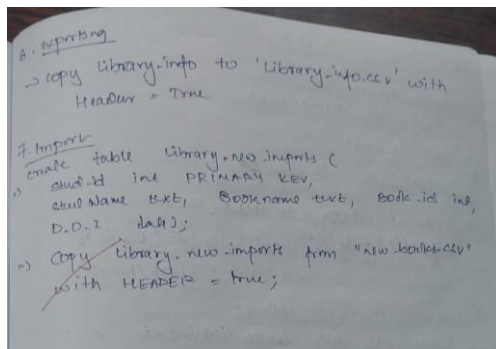 6. Exporting
→ copy Library_info to 'Library_info.csv' with
Header = True
7. Import
create table Library.new_imports (
stud_id int PRIMARY KEY,
stud Name text, Bookname text, Book_id int,
D.O.I date);
→) Copy Library.new_imports from "new_books.csv"
with HEADER = true;